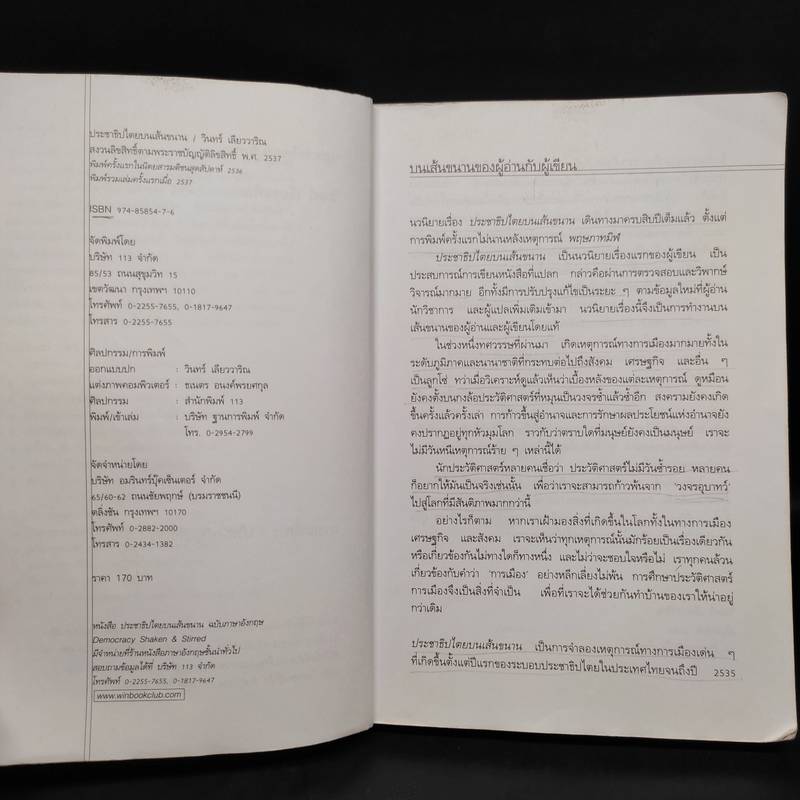 ประชาธิปไตยบนเส้นขนาน / วินทร์ เลียววาริณ
สงวนลิขสิทธิ์ตามพระราชบัญญัติลิขสิทธิ์ พ.ศ. 2537
พิมพ์ครั้งแรกในนิตยสารมติชนสุดสัปดาห์ 2536
พิมพ์รวมเล่มครั้งแรกเมื่อ 2537
ISBN 974-85854-7-6
จัดพิมพ์โดย
บริษัท 113 จำกัด
85/53 ถนนสุขุมวิท 15
เขตวัฒนา กรุงเทพฯ 10110
โทรศัพท์ 0-2255-7655, 0-1817-9647
โทรสาร 0-2255-7655
ศิลปกรรม/การพิมพ์
ออกแบบปก : วินทร์ เลียววาริณ
แต่งภาพคอมพิวเตอร์ : ธเนตร อนงค์พรยศกุล
ศิลปกรรม : สำนักพิมพ์ 113
พิมพ์/เข้าเล่ม : บริษัท ฐานการพิมพ์ จำกัด
โทร. 0-2954-2799
จัดจำหน่ายโดย
บริษัท อมรินทร์บุ๊คเซ็นเตอร์ จำกัด
65/60-62 ถนนชัยพฤกษ์ (บรมราชชนนี)
ตลิ่งชัน กรุงเทพฯ 10170
โทรศัพท์ 0-2882-2000
โทรสาร 0-2434-1382
ราคา 170 บาท
หนังสือ ประชาธิปไตยบนเส้นขนาน ฉบับภาษาอังกฤษ
Democracy Shaken & Stirred
มีจำหน่ายที่ร้านหนังสือภาษาอังกฤษชั้นนำทั่วไป
สอบถามข้อมูลได้ที่ บริษัท 113 จำกัด
โทรศัพท์ 0-2255-7655, 0-1817-9647
www.winbookclub.com
บนเส้นขนานของผู้อ่านกับผู้เขียน
นวนิยายเรื่อง ประชาธิปไตยบนเส้นขนาน เดินทางมาครบสิบปีเต็มแล้ว ตั้งแต่
การพิมพ์ครั้งแรกไม่นานหลังเหตุการณ์ พฤษภาทมิฬ
ประชาธิปไตยบนเส้นขนาน เป็นนวนิยายเรื่องแรกของผู้เขียน เป็น
ประสบการณ์การเขียนหนังสือที่แปลก กล่าวคือผ่านการตรวจสอบและวิพากษ์
วิจารณ์มากมาย อีกทั้งมีการปรับปรุงแก้ไขเป็นระยะ ๆ ตามข้อมูลใหม่ที่ผู้อ่าน
นักวิชาการ และผู้แปลเพิ่มเติมเข้ามา นวนิยายเรื่องนี้จึงเป็นการทำงานบน
เส้นขนานของผู้อ่านและผู้เขียนโดยแท้
ในช่วงหนึ่งทศวรรษที่ผ่านมา เกิดเหตุการณ์ทางการเมืองมากมายทั้งใน
ระดับภูมิภาคและนานาชาติที่กระทบต่อไปถึงสังคม เศรษฐกิจ และอื่น ๆ
เป็นลูกโซ่ ทว่าเมื่อวิเคราะห์ดูแล้วเห็นว่าเบื้องหลังของแต่ละเหตุการณ์ ดูเหมือน
ยังคงตั้งบนกงล้อประวัติศาสตร์ที่หมุนเป็นวงจรซ้ำแล้วซ้ำอีก สงครามยังคงเกิด
ขึ้นครั้งแล้วครั้งเล่า การก้าวขึ้นสู่อำนาจและการรักษาผลประโยชน์แห่งอำนาจยัง
คงปรากฏอยู่ทุกหัวมุมโลก ราวกับว่าตราบใดที่มนุษย์ยังคงเป็นมนุษย์ เราจะ
ไม่มีวันหนีเหตุการณ์ร้าย ๆ เหล่านี้ได้
นักประวัติศาสตร์หลายคนเชื่อว่า ประวัติศาสตร์ไม่มีวันซ้ำรอย หลายคน
ก็อยากให้มันเป็นจริงเช่นนั้น เพื่อว่าเราจะสามารถก้าวพ้นจาก 'วงจรอุบาทว์'
ไปสู่โลกที่มีสันติภาพมากกว่านี้
อย่างไรก็ตาม หากเราเฝ้ามองสิ่งที่เกิดขึ้นในโลกทั้งในทางการเมือง
เศรษฐกิจ และสังคม เราจะเห็นว่าทุกเหตุการณ์นั้นมักร้อยเป็นเรื่องเดียวกัน
หรือเกี่ยวข้องกันไม่ทางใดก็ทางหนึ่ง และไม่ว่าจะชอบใจหรือไม่ เราทุกคนล้วน
เกี่ยวข้องกับคำว่า 'การเมือง' อย่างหลีกเลี่ยงไม่พ้น การศึกษาประวัติศาสตร์
การเมืองจึงเป็นสิ่งที่จำเป็น เพื่อที่เราจะได้ช่วยกันทำบ้านของเราให้น่าอยู่
กว่าเดิม
ประชาธิปไตยบนเส้นขนาน เป็นการจำลองเหตุการณ์ทางการเมืองเด่น ๆ
ที่เกิดขึ้นตั้งแต่ปีแรกของระบอบประชาธิปไตยในประเทศไทยจนถึงปี 2535